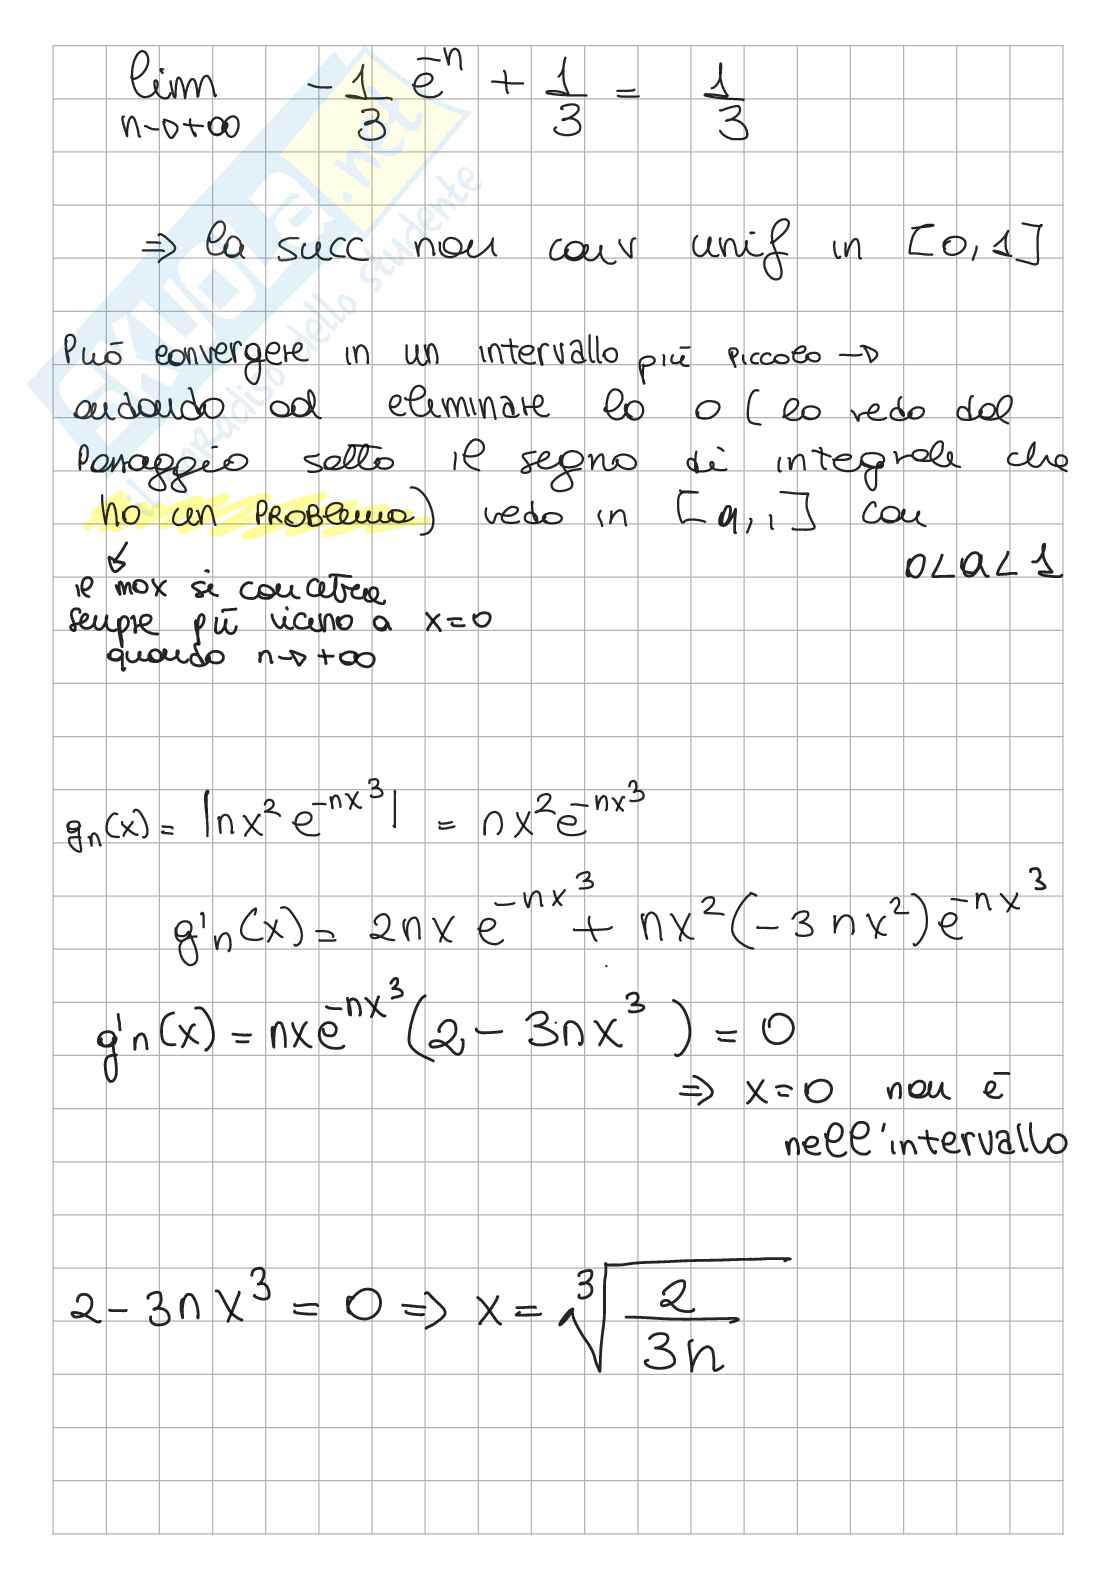 lim -1/3 e^-n + 1/3 = 1/3
n→+∞
⇒ la succ non conv unif in [0,1]
Può convergere in un intervallo più piccolo →
andando ad eliminare lo 0 (lo vedo dal
Passaggio sotto il segno di integrale che
ho un PROBlema) vedo in [a,1] con
0<a<1
il max si concentra
sempre più vicino a x=0
quando n→+∞
gn(x)= |nx² e^-nx³| = nx²e^-nx³
g'n(x)= 2nx e^-nx³ + nx²(-3nx²)e^-nx³
g'n(x)= nxe^-nx³(2-3nx³) = 0
⇒ x=0 non è
nell'intervallo
2-3nx³ = 0 ⇒ x= ∛(2/3n)
SKUOLA.net
il paradiso dello studente